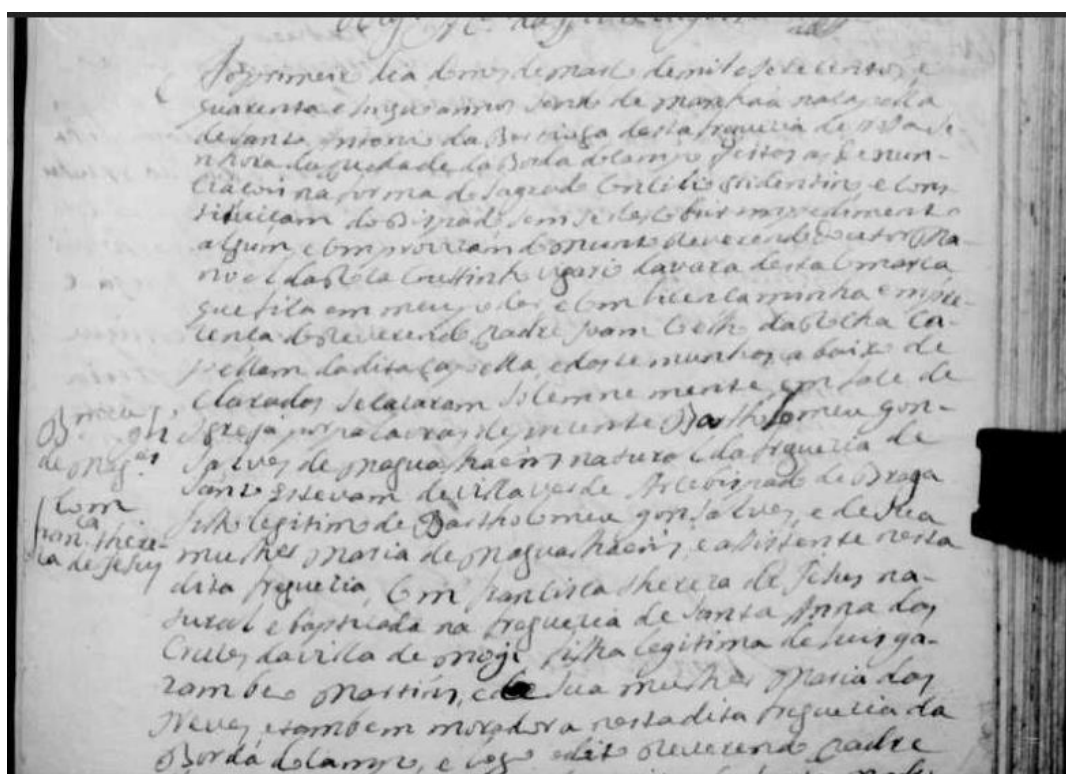 Ao primeiro dia do mes de maio de mil e sete centos e
quarenta e sinque annos sendo de manhaã na capella
de santo Antonio da Bertioga desta freguezia de nosa se
nhora da piedade da Borda do campo feitos as denun
ciacoins na forma do sagrado concilio tridentino e cons
tituiçam do Bispado sem se descobrir impedimento
algum, e com provizam do muito Reverendo Doutor Ma-
noel da
que fica em meu poder e com licenca minha em pre
cenca do Reverendo Padre Joam da Rocha Ca-
pellam da dita capella, e dos testemunhos a baixo de
clarados se cazaram solemne mente em face de
Igreja por palavras de prezente Bartholomeu gon-
salves de Magualhaens natural da freguezia de
Santo Estevam de villa verde Arcebispado de Braga
filho legitimo de Bartholomeu gonsalves, e de sua
mulher Maria de Magualhaens, e assistente nesta
dita freguezia, com francisca thereza de Jesus na-
tural e baptizada na freguezia de santa Anna das
Cruzes da villa de Mogi filha legitima de Luis ga-
Martins, e de sua mulher Maria das
Neves, e tambem moradora nesta dita freguezia da
Borda do campo, e logo o dito Reverendo Padre
de Mag.es
Com
fran.ca there-
za de Jesus